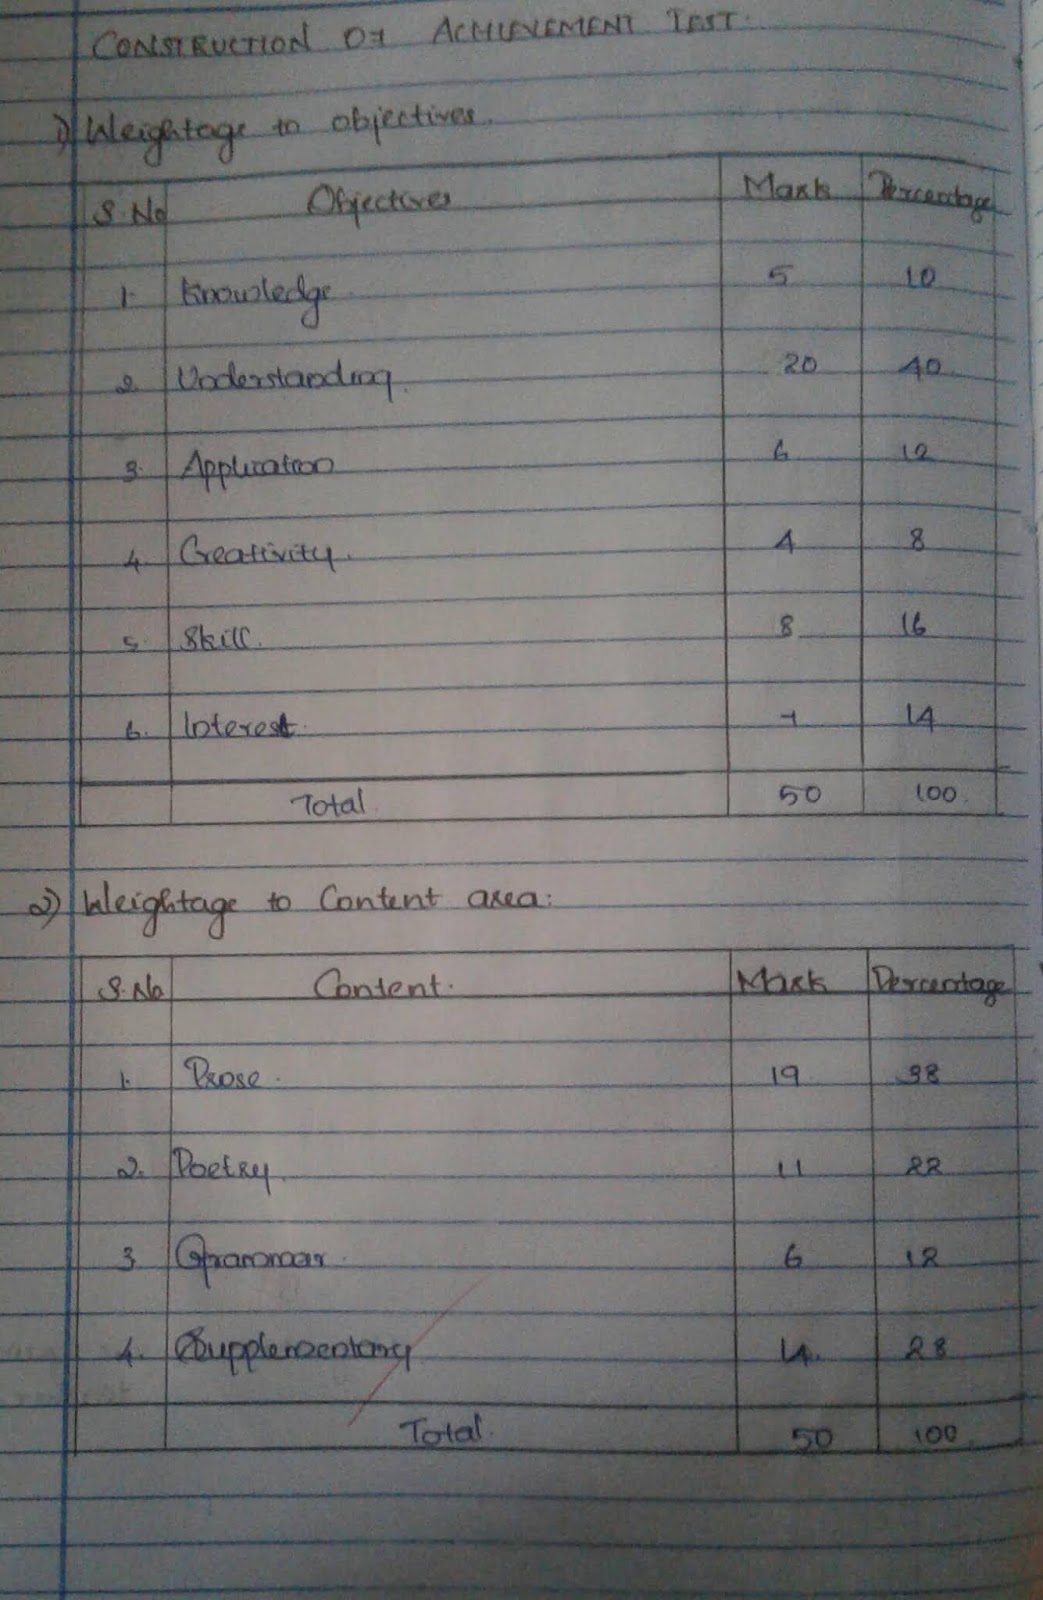 CONSTRUCTION OF ACHIEVEMENT TEST.
1) Weightage to objectives.
S.No Objectives Mark Percentage
1. Knowledge 5 10
2. Understanding. 20 40
3. Application 6 12
4. Creativity. 4 8
5. Skill. 8 16
6. Interest. 7 14
Total 50 100
2) Weightage to Content area:
S.No Content. Mark Percentage
1. Prose. 19 38
2. Poetry 11 22
3. Grammar. 6 12
4. Supplementary 14 28
Total. 50 100